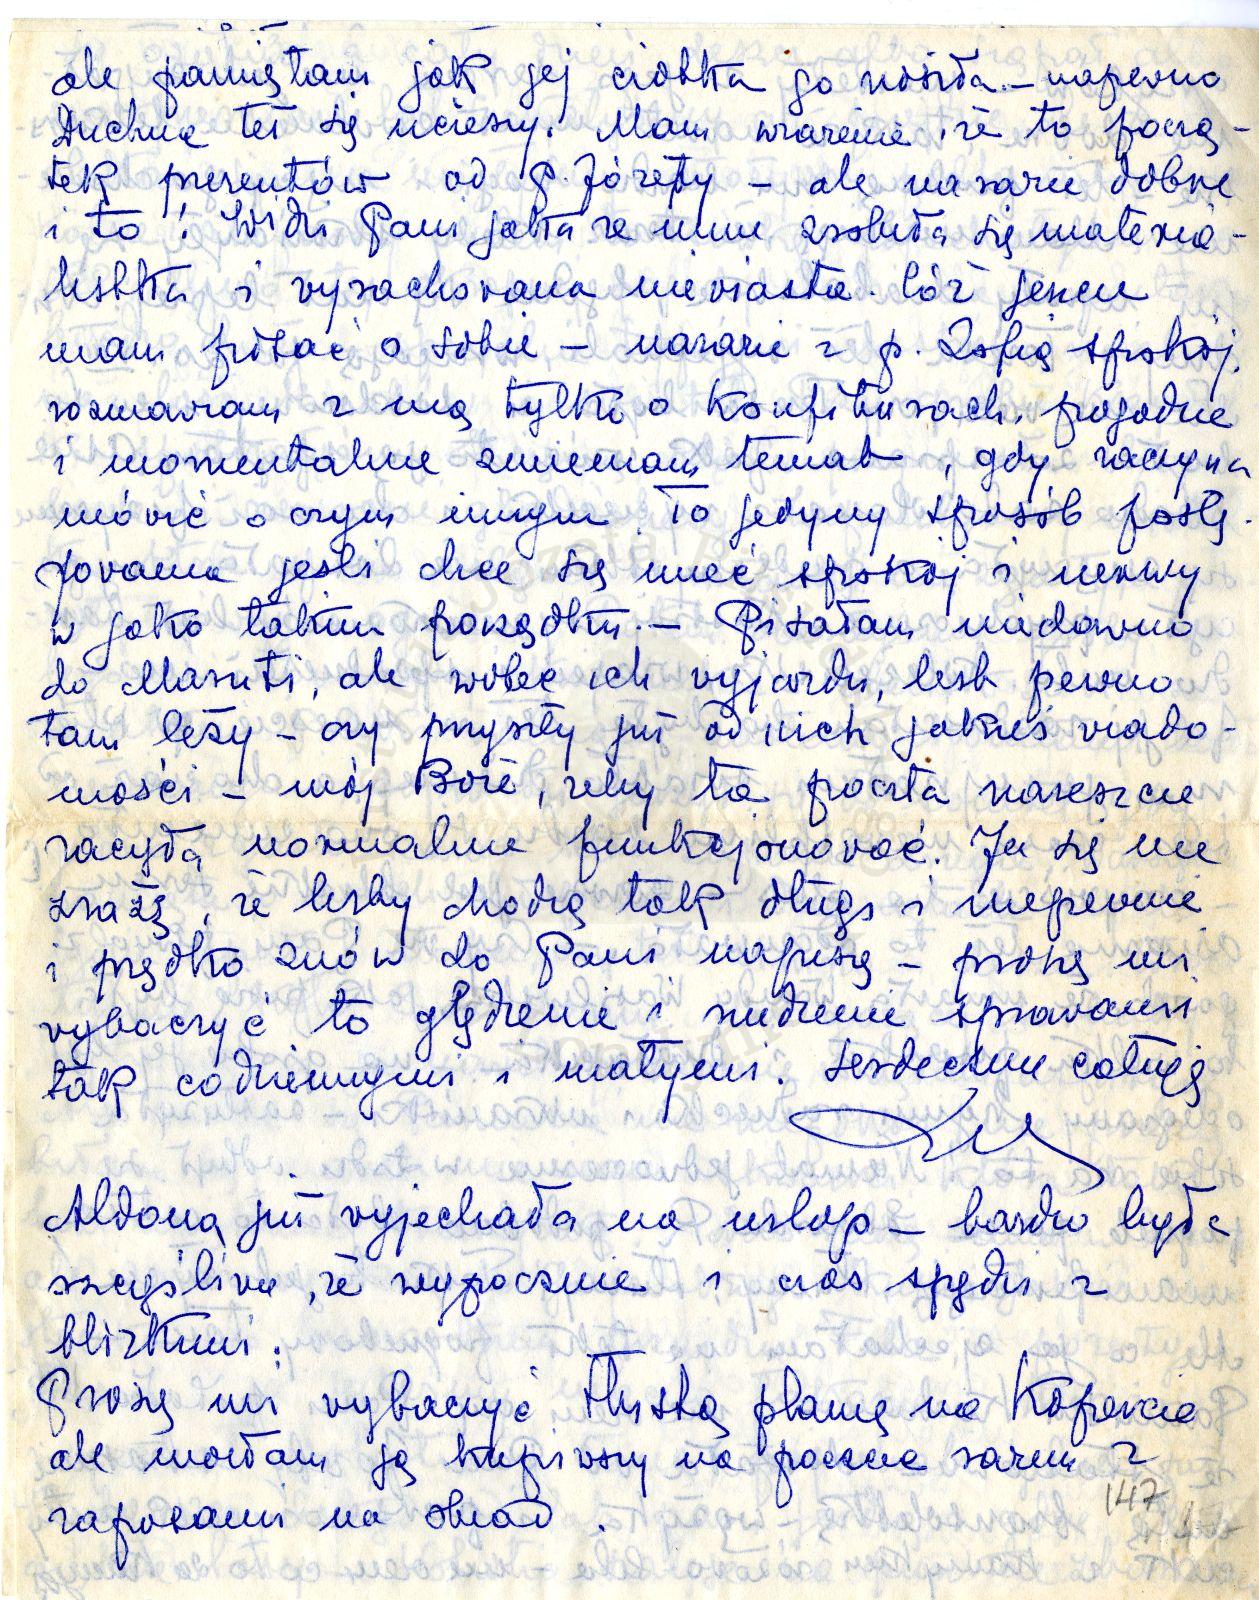 ale pamiętam jak jej ciotka go nosiła – napewno
Duchna też się ucieszy. Mam wrażenie, że to począ-
tek prezentów od p. Józefy – ale narazie dobre
i to! Widzi Pani jaka ze mnie zrobiła się materia-
listka i wyrachowana niewiasta. Cóż jeszcze
mam pisać o sobie – narazie z p. Zofią spokój,
rozmawiam z nią tylko o konfiturach, pogodzie
i momentalnie zmieniam temat, gdy zaczyna
mówić o czym innym. To jedyny sposób postę-
powania jeśli chce się mieć spokój i nerwy
w jako takim porządku. – Pisałam niedawno
do Maruti, ale wobec ich wyjazdu, list pewno
tam leży – czy przyszły już od nich jakieś wiado-
mości – mój Boże, żeby ta poczta nareszcie
zaczęła normalnie funkcjonować. Ja się nie
zrażę, że listy chodzą tak długo i niepewnie
i prędko znów do Pani napiszę – proszę mi
wybaczyć to ględzenie i nudzenie sprawami
tak codziennymi i małymi. Serdecznie całuję
Aldona już wyjechała na urlop – bardzo była
szczęśliwa, że wypocznie i czas spędzi z
blizkimi.
Proszę mi wybaczyć tłustą plamę na kopercie
ale niosłam ją kupiwszy na poczcie razem z
zapasami na obiad.
147